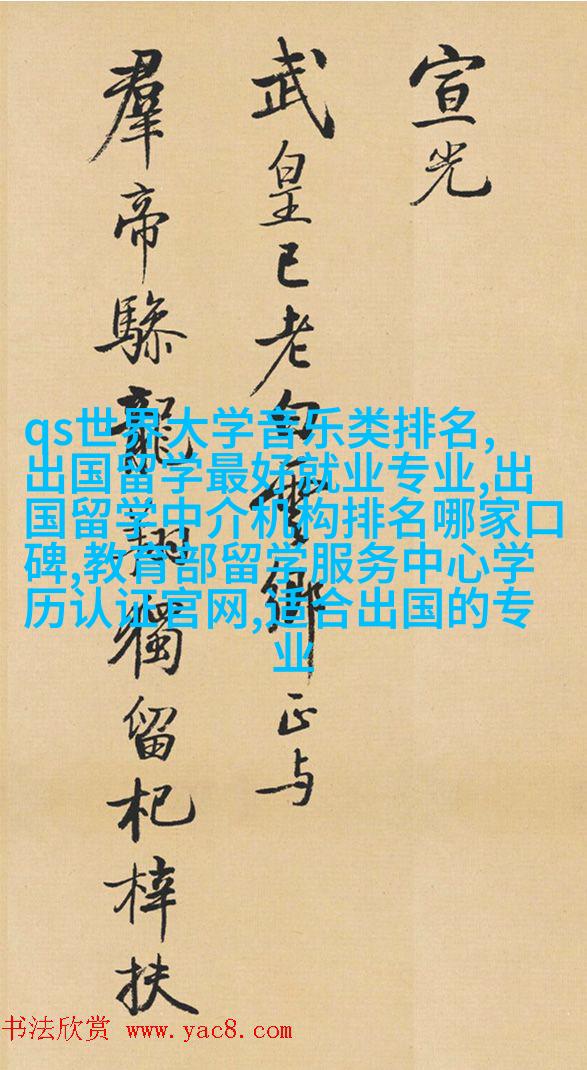 宣光
武皇已老白雲鄉正与
羣帝驂龍翔獨留杞梓扶
qs世界大学音乐类排名,
出国留学最好就业专业,出
国留学中介机构排名哪家口
碑,教育部留学服务中心学
历认证官网,适合出国的专
业
书法欣赏 www.yac8.com